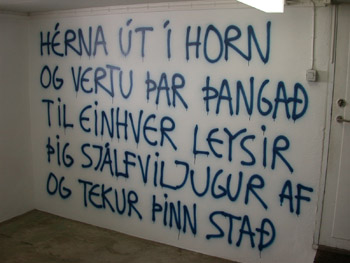 HÉRNA ÚT Í HORN
OG VERTU ÞAR ÞANGAÐ
TIL EINHVER LEYSIR
ÞIG SJÁLFVILJUGUR AF
OG TEKUR ÞINN STAÐ